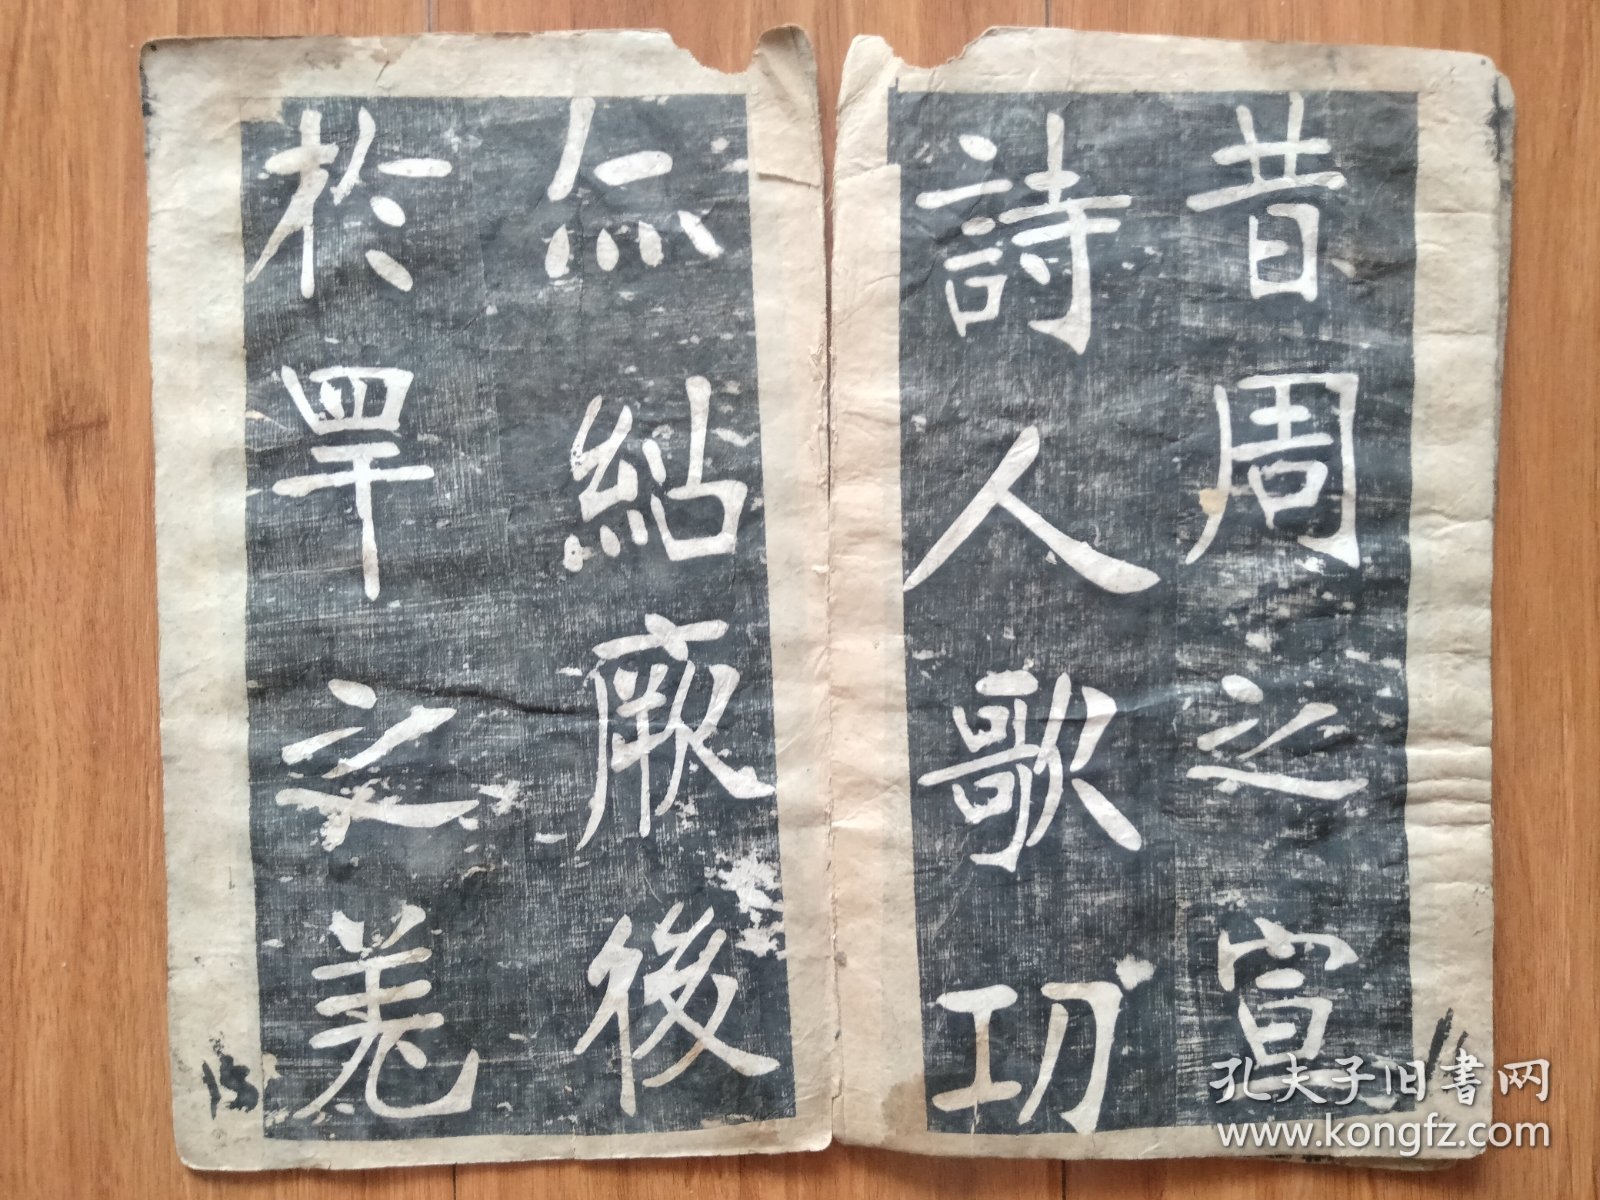 昔周之宣
詩人歌功
亦紹厥後
於䍐之羌
孔夫子旧書网
www.kongfz.com